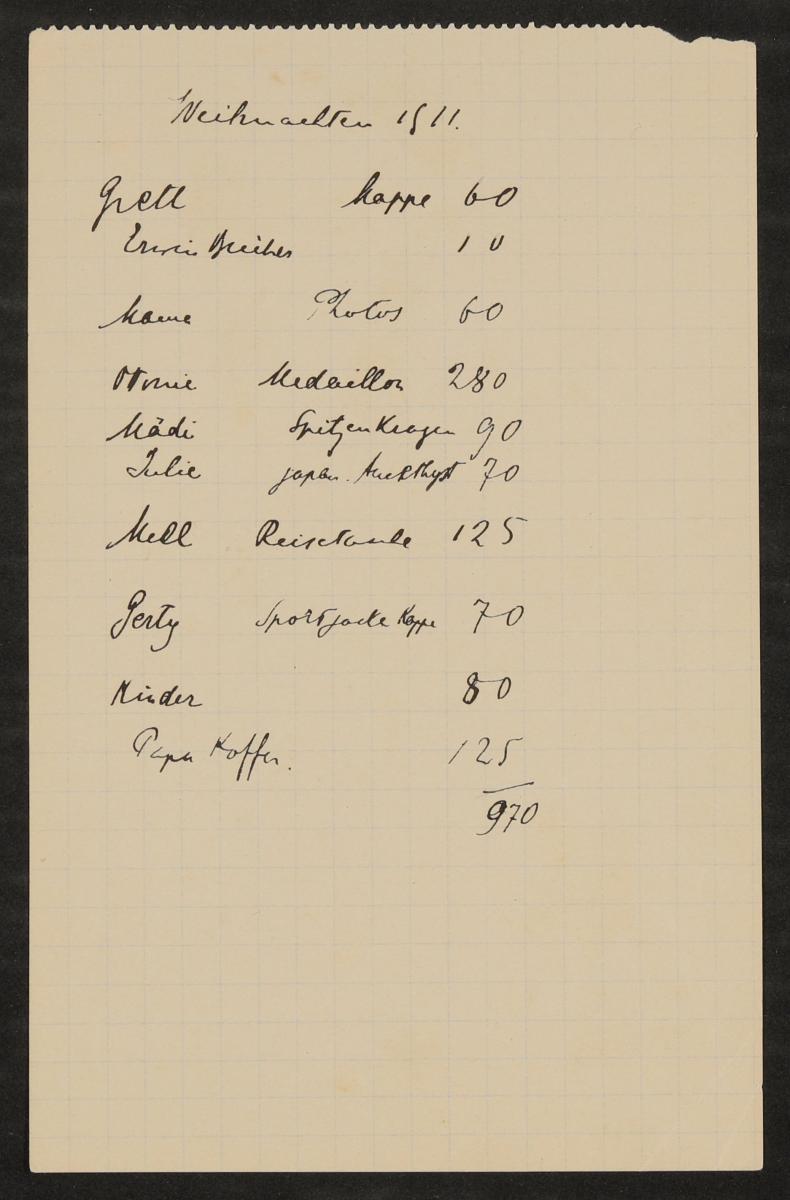 Weihnachten 1911.
Gretl Mappe 60
Erwin Bücher 10
Mama Photos 60
Ottonie Medaillon 280
Mädi Spitzenkragen 90
Julie japan. Amethyst 70
Mell 125
Gerty Sportjacke Kappe 70
Kinder 80
Papa Koffer. 125
970